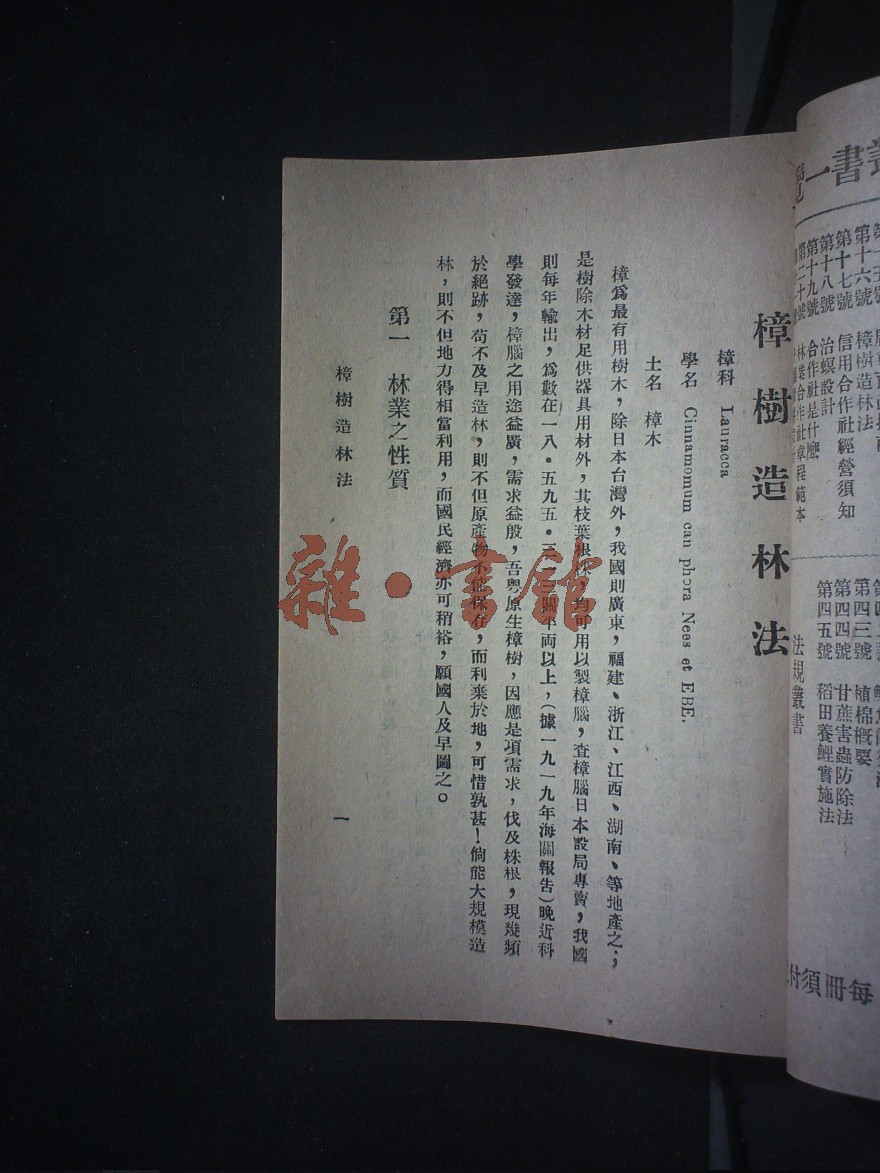 叢書一覽
第十六號 樟樹造林法
第十七號 信用合作社經營須知
第十八號 治螟設計
第十九號 合作社是什麼
第二十號 林業合作社章程範本
法規叢書
第四三號 植棉概要
第四四號 甘蔗害蟲防除法
第四五號 稻田養鯉實施法
每冊須
樟樹造林法
樟科 Lauracca
學名 Cinnamomum can phora Nees et EBE.
土名 樟木
樟爲最有用樹木，除日本台灣外，我國則廣東，福建、浙江、江西、湖南、等地產之；
是樹除木材足供器具用材外，其枝葉根株，均可用以製樟腦，查樟腦日本設局專賣，我國
則每年輸出，爲數在一八・五九五・三一二關平両以上，（據一九一九年海關報告）晚近科
學發達，樟腦之用途益廣，需求益殷，吾粵原生樟樹，因應是項需求，伐及株根，現幾頻
於絕跡，苟不及早造林，則不但原產物不能保存，而利棄於地，可惜孰甚！倘能大規模造
林，則不但地力得相當利用，而國民經濟亦可稍裕，願國人及早圖之。
第一 林業之性質
樟樹造林法
一
雜・書館